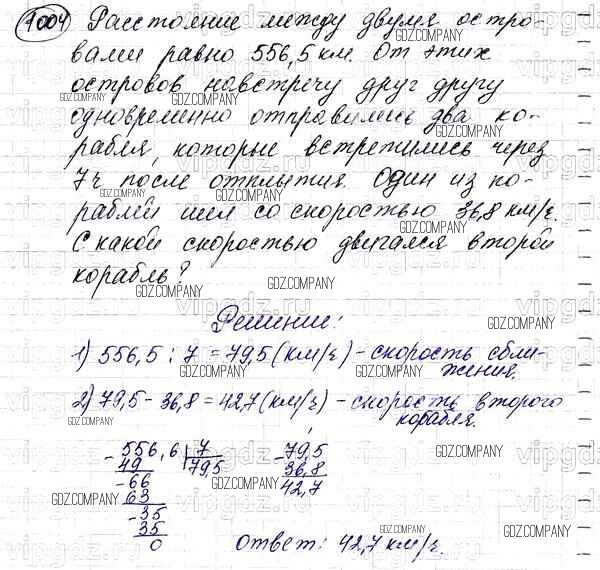 1004 Расстояние между двумя остро-
вами равно 556,5 км. От этих
островов навстречу друг другу
одновременно отправились два ко-
рабля, которые встретились через
7ч после отплытия. Один из ко-
раблей шел со скоростью 36,8 км/ч.
С какой скоростью двигался второй
корабль?
Решение:
1) 556,5 : 7 = 79,5 (км/ч) - скорость сбли-
жения.
2) 79,5 - 36,8 = 42,7 (км/ч) - скорость второго
корабля.
- 556,6 | 7
49 79,5
- 66
63
- 35
35
0
- 79,5
36,8
42,7
Ответ: 42,7 км/ч.
GDZ.COMPANY
vipgdz.ru